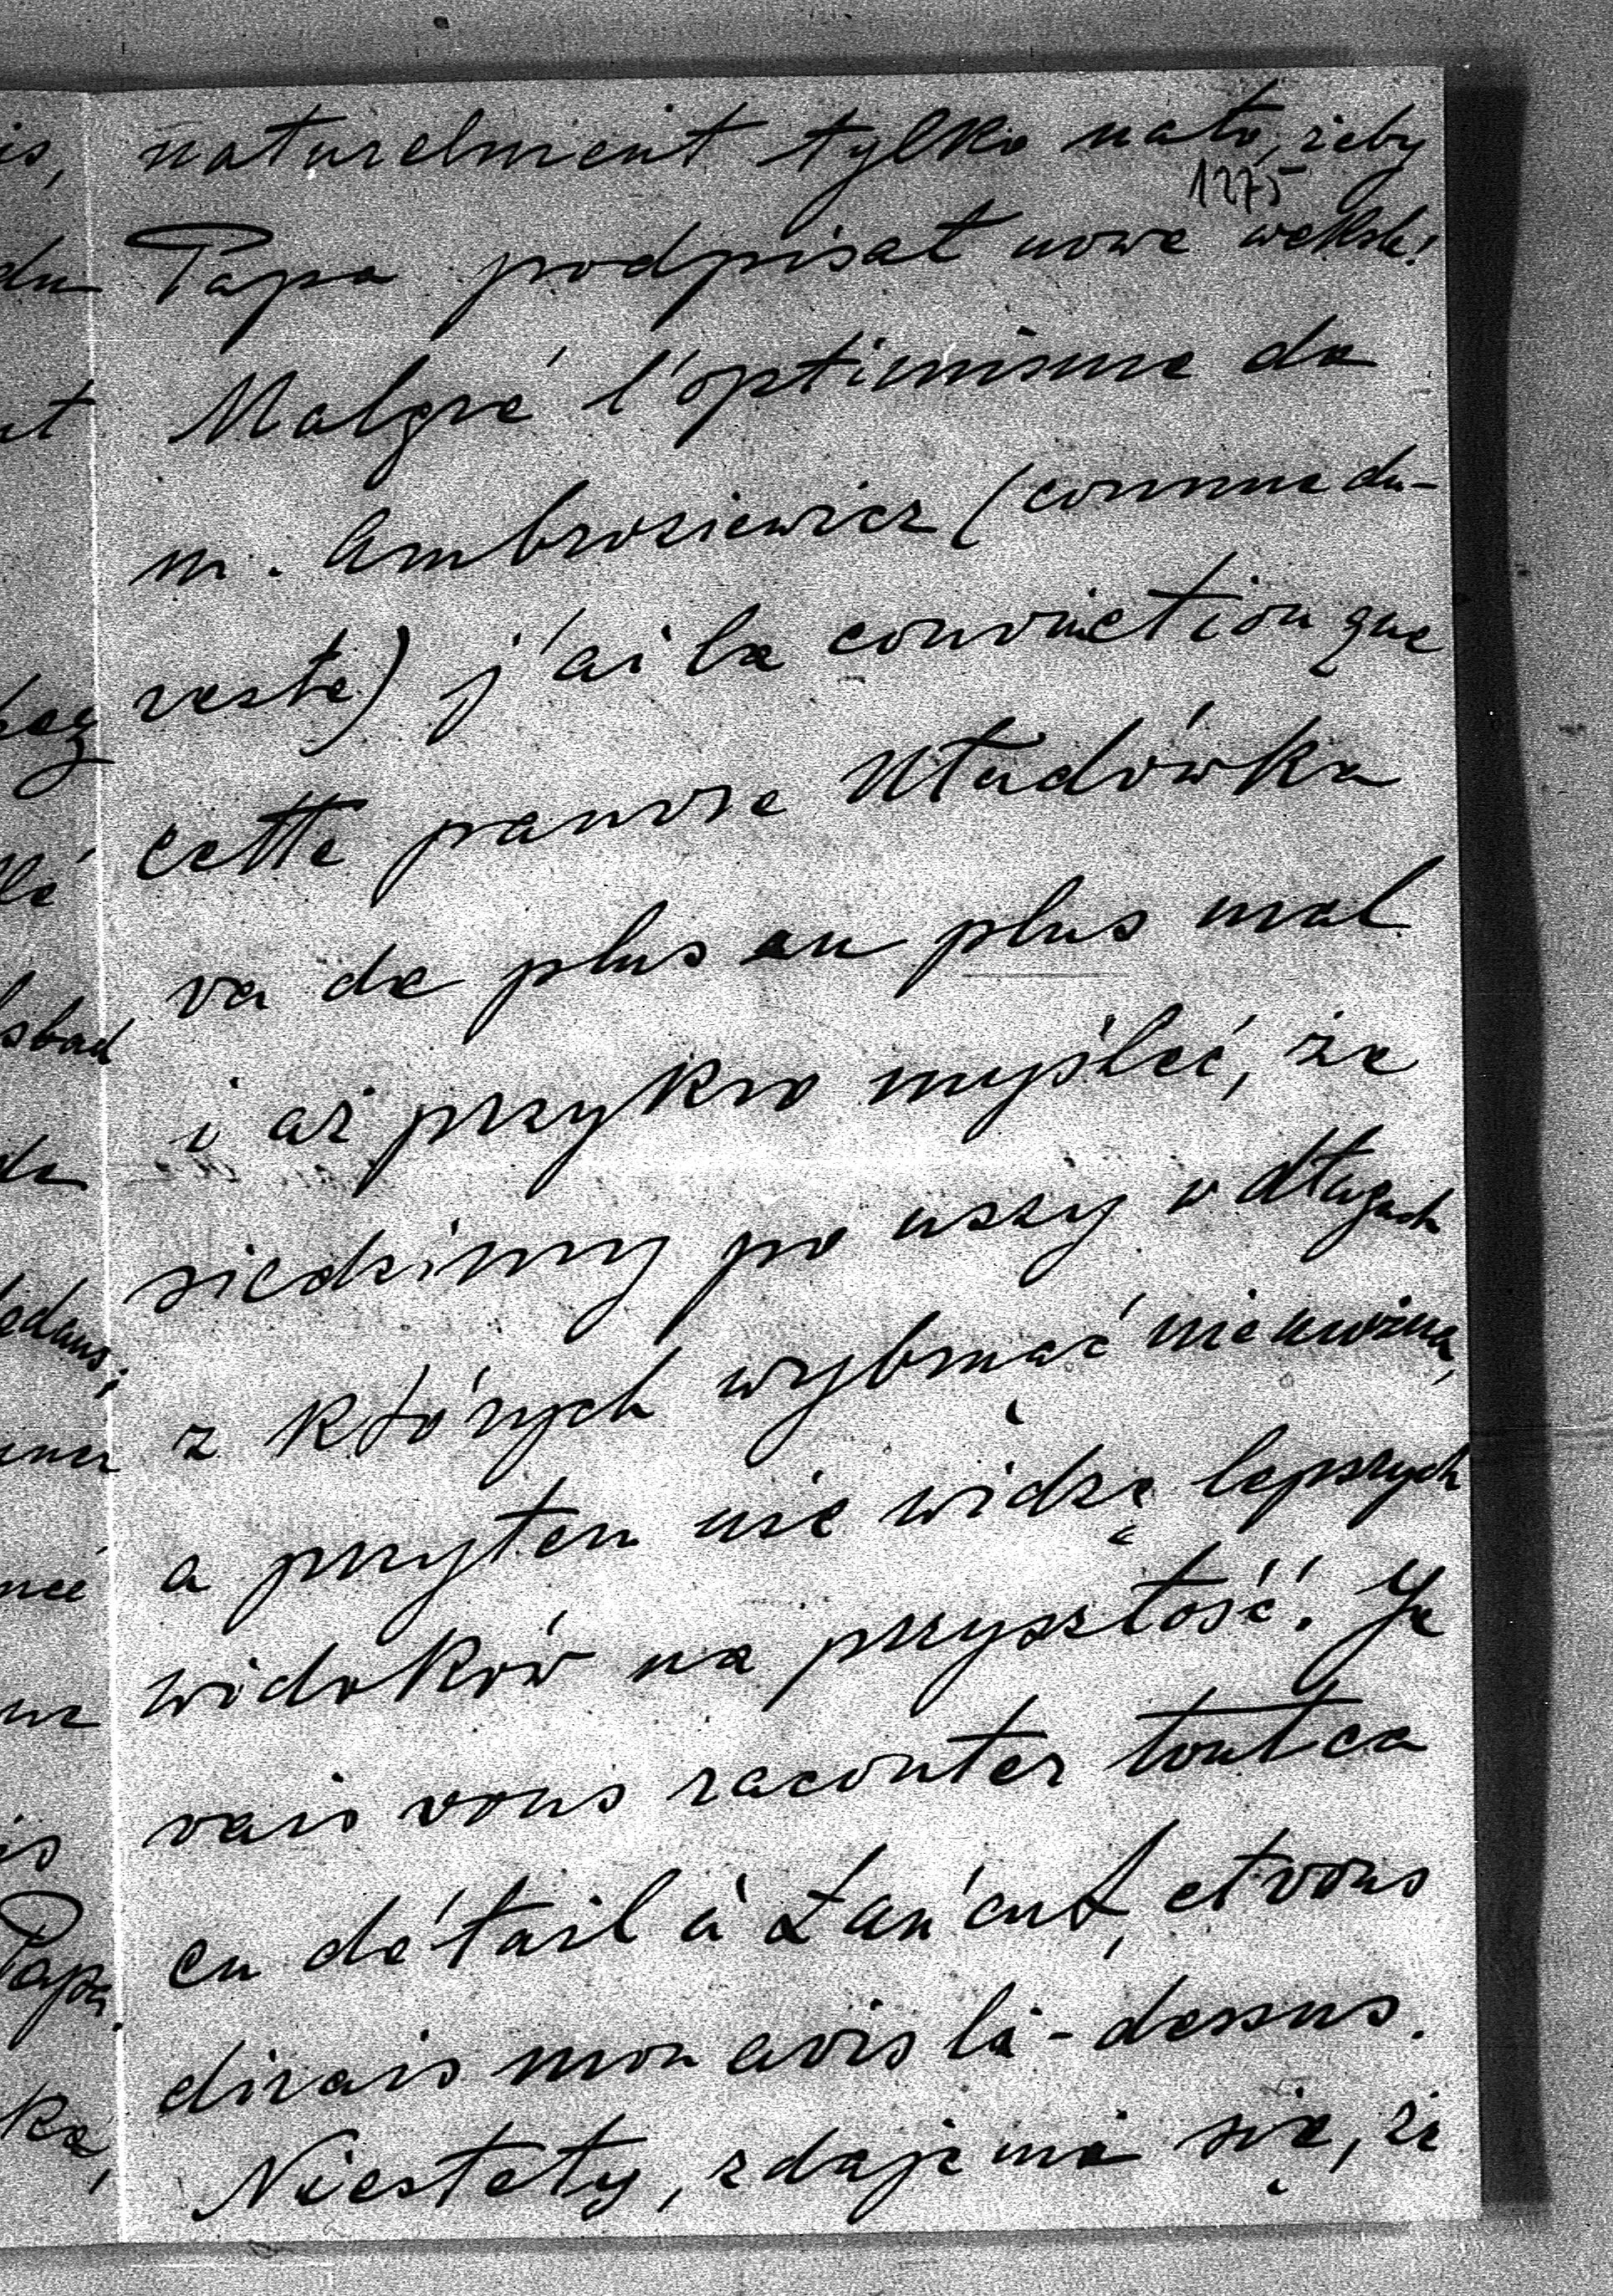 naturelment tylko nato, żeby
1275
Papa podpisał nowe weksle!
Malgré l'optimisme de
m. Ambrosiewicz (comme du-
reste) j'ai la conviction que
cette pauvre Uładówka
va de plus en plus mal
i aż przykro myśleć, że
siedzimy po uszy w długach
z których wybrnąć nie można,
a przytem nie widzę lepszych
widoków na przyszłość. Je
vais vous raconter tout ca
en détail à Łańcut, et vous
dirais mon avis là-dessus.
Niestety, zdaje mi się, że